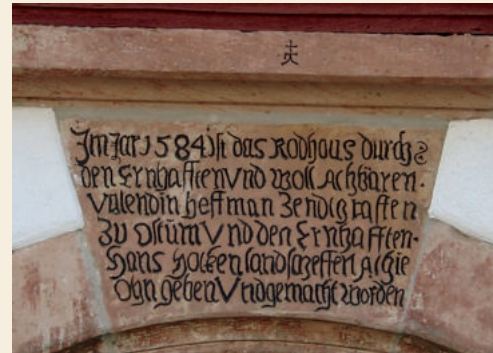 Im Jar 1584 ist das Rodhaus durch
den Ernhafften Vnd woll Achbaren.
Valendin heffman Zendigraffen
Zu Ostum Vnd den Ernhafften
Hans Hocken landscheffen Alhie
Ohn geben Vnd gemacht worden